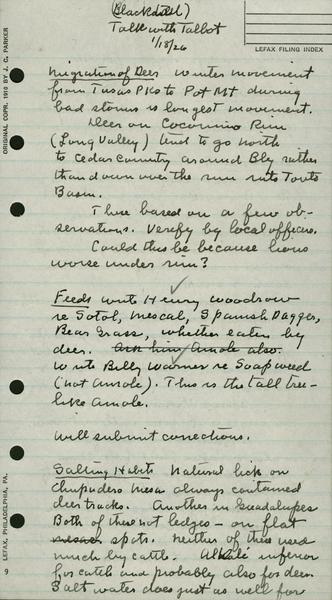 (Blackdtail)
Talk with Talbot
1/18/26
LEFAX FILING INDEX
ORIGINAL COPR. 1910 BY J. C. PARKER
Migration of Deer Winter movement
from Tusas Pks to Pot Mt during
bad storms is longest movement.
Deer on Coconino Rim
(Long Valley) tend to go north
to Cedar Country around Bly rather
than down over the rim into Tonto
Basin.
These based on a few ob-
servations. Verify by local officers.
Could this be because lions
worse under rim?
Feeds Write Henry Woodrow
re Sotol, Mescal, Spanish Dagger,
Bear Grass, whether eaten by
deer. Ask him Amole also.
Write Billy Warner re Soapweed
(not Amole). This is the tall tree-
like Amole.
Will submit corrections.
Salting Habits Natural lick on
Chupadera Mesa always contained
deer tracks. Another in Guadalupes
Both of these not ledges - on flat
spots. Neither of these used
much by cattle. Alkali inferior
for cattle and probably also for deer
Salt water does just as well for
LEFAX, PHILADELPHIA, PA.
9